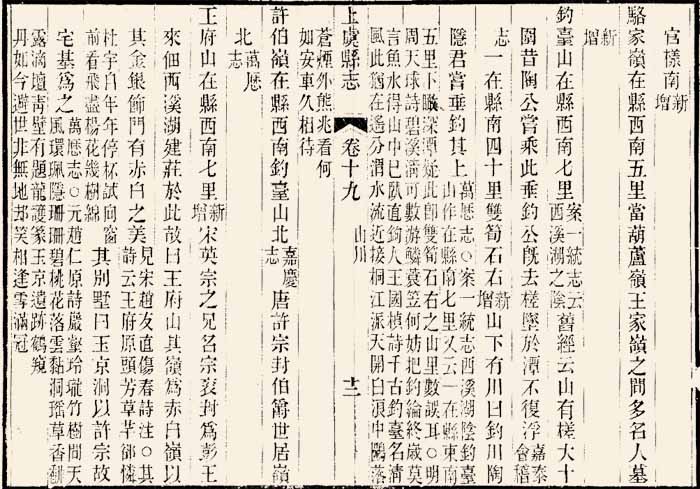 官樣南新增
駱家嶺在縣西南五里當葫蘆嶺王家嶺之間多名人墓
新增
釣臺山在縣西南七里案一統志云西溪湖之陰舊經云山有槎大十
圍昔陶公嘗乘此垂釣公旣去槎墜於潭不復浮嘉泰會稽
志一在縣南四十里雙筍石右新增山下有川曰釣川陶
隱君嘗垂釣其上萬厯志○案一統志西溪湖陰釣臺山作在縣南七里又云一在縣東南
五里下瞰深潭疑此卽雙筍石右之山里數誤耳○明
周天球詩碧溪淸可數游鱗蓑笠何妨把釣綸終歲莫
言魚水得山中巳臥直鉤人王國楨詩千古釣臺名淸
風此猶在遙分渭水流近接桐江派天開白浪中鷗落
上虞縣志
卷十九
山川
十二
蒼煙外熊兆看何
如安車久相待
許伯嶺在縣西南釣臺山北嘉慶志唐許宗封伯爵世居嶺
北萬厯志
王府山在縣西南七里新增宋英宗之兄名宗袞封爲彭王
來佃西溪湖建莊於此故曰王府山其嶺爲赤白嶺以
其金銀飾門有赤白之美見宋趙友直傷春詩注○其詩云王府原頭芳草芊郤憐
杜宇自年年停杯試向窗
前看飛盡楊花幾樹綿其別墅曰玉京洞以許宗故
宅基爲之萬厯志○元趙仁原詩嚴壑玲瓏竹樹間天風環珮隱珊珊碧桃花落雲黏洞瑶草香翻
露滴壇靑壁有題龍護篆玉京遺跡鶴窺
丹如今避世非無地却笑相逢雪滿冠